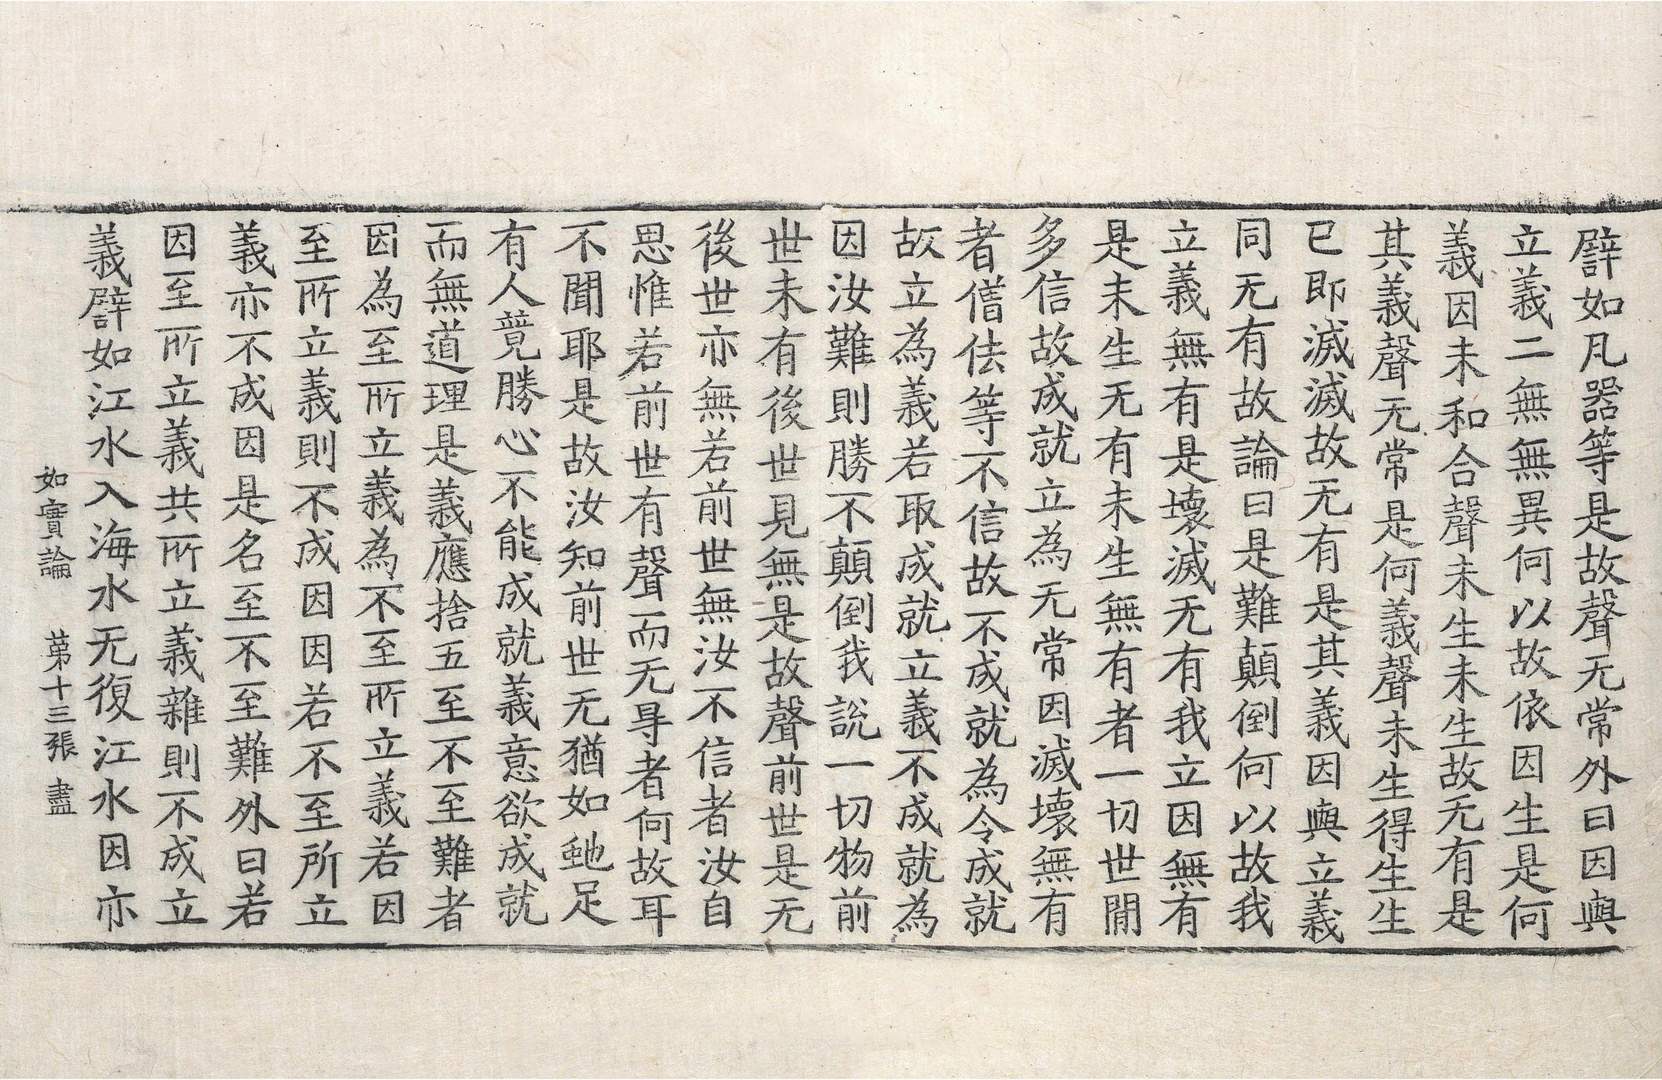 譬如凡器等是故聲无常外曰因與
立義二無無異何以故依因生是何
義因未和合聲未生未生故无有是
其義聲无常是何義聲未生得生生
已即滅滅故无有是其義因與立義
同无有故論曰是難顛倒何以故我
立義無有是壞滅无有我立因無有
是未生无有未生無有者一切世間
多信故成就立為无常因滅壞無有
者僧佉等不信故不成就為令成就
故立為義若取成就立義不成就為
因汝難則勝不顛倒我說一切物前
世未有後世見無是故聲前世是无
後世亦無若前世無汝不信者汝自
思惟若前世有聲而无㝵者何故耳
不聞耶是故汝知前世无猶如虵足
有人䒖勝心不能成就義意欲成就
而無道理是義應捨五至不至難者
因為至所立義為不至所立義若因
至所立義則不成因因若不至所立
義亦不成因是名至不至難外曰若
因至所立義共所立義雜則不成立
義譬如江水入海水无復江水因亦
如實論 苐十三張 盡